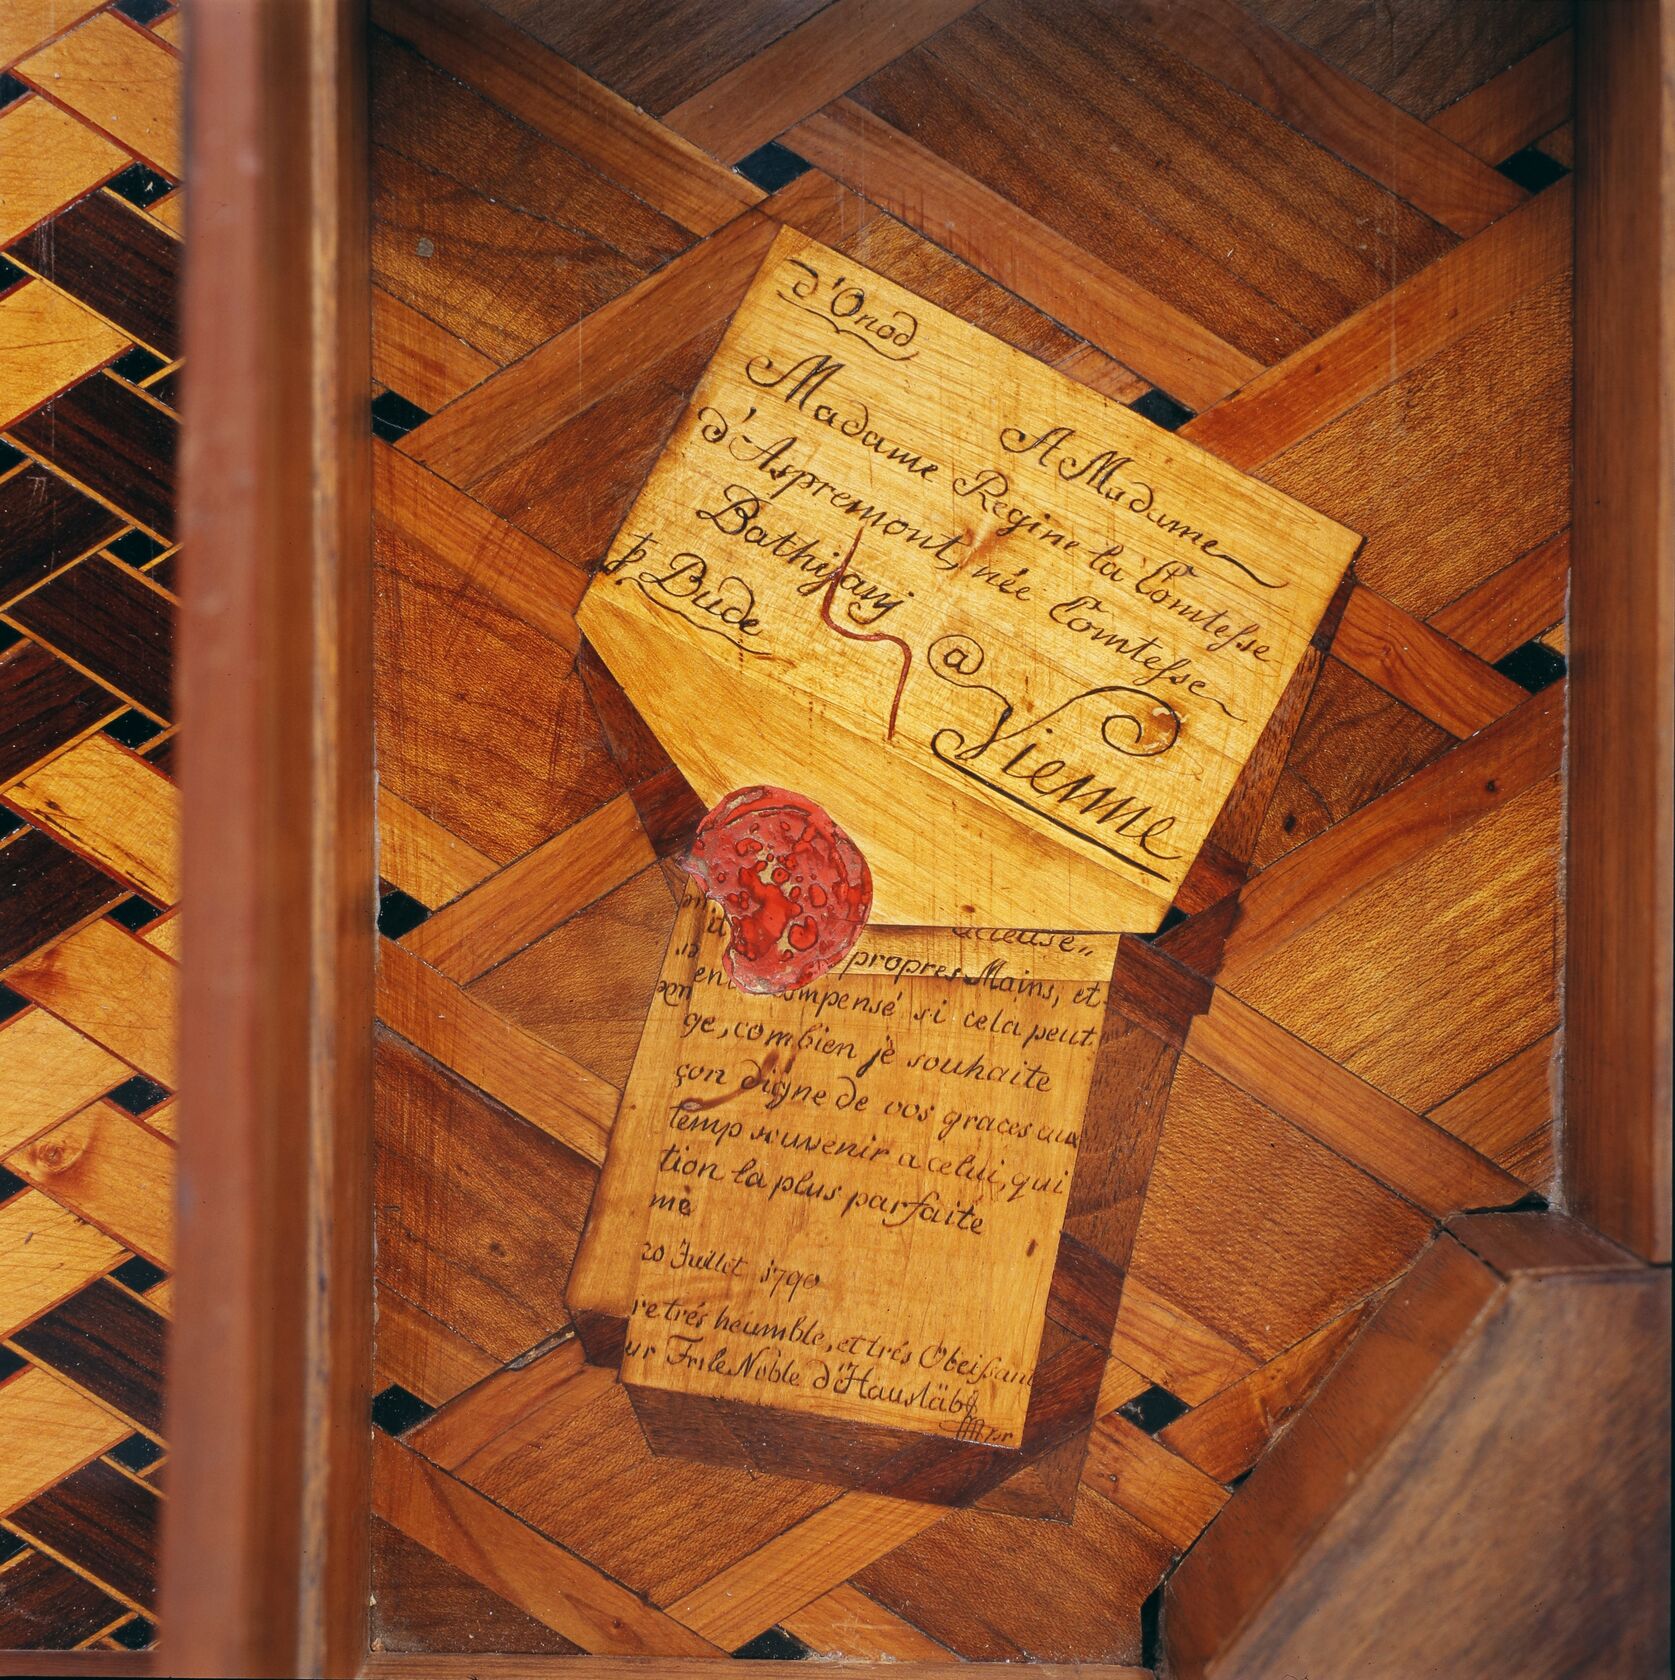 d'Onod
A Madame
Madame Regine la Comtesse
d'Aspremont, née Comtesse
Bathyanj
p Bude
@ Vienne
cieuse,,
propres Mains, et
mpensé si cela peut
ge, combien je souhaite
çon digne de vos graces aux
temp souvenir a celui, qui
tion la plus parfaite
me
20 Juillet 1790
re trés heumble, et trés Obeissant
ur Frilè Noble d'Hausläb